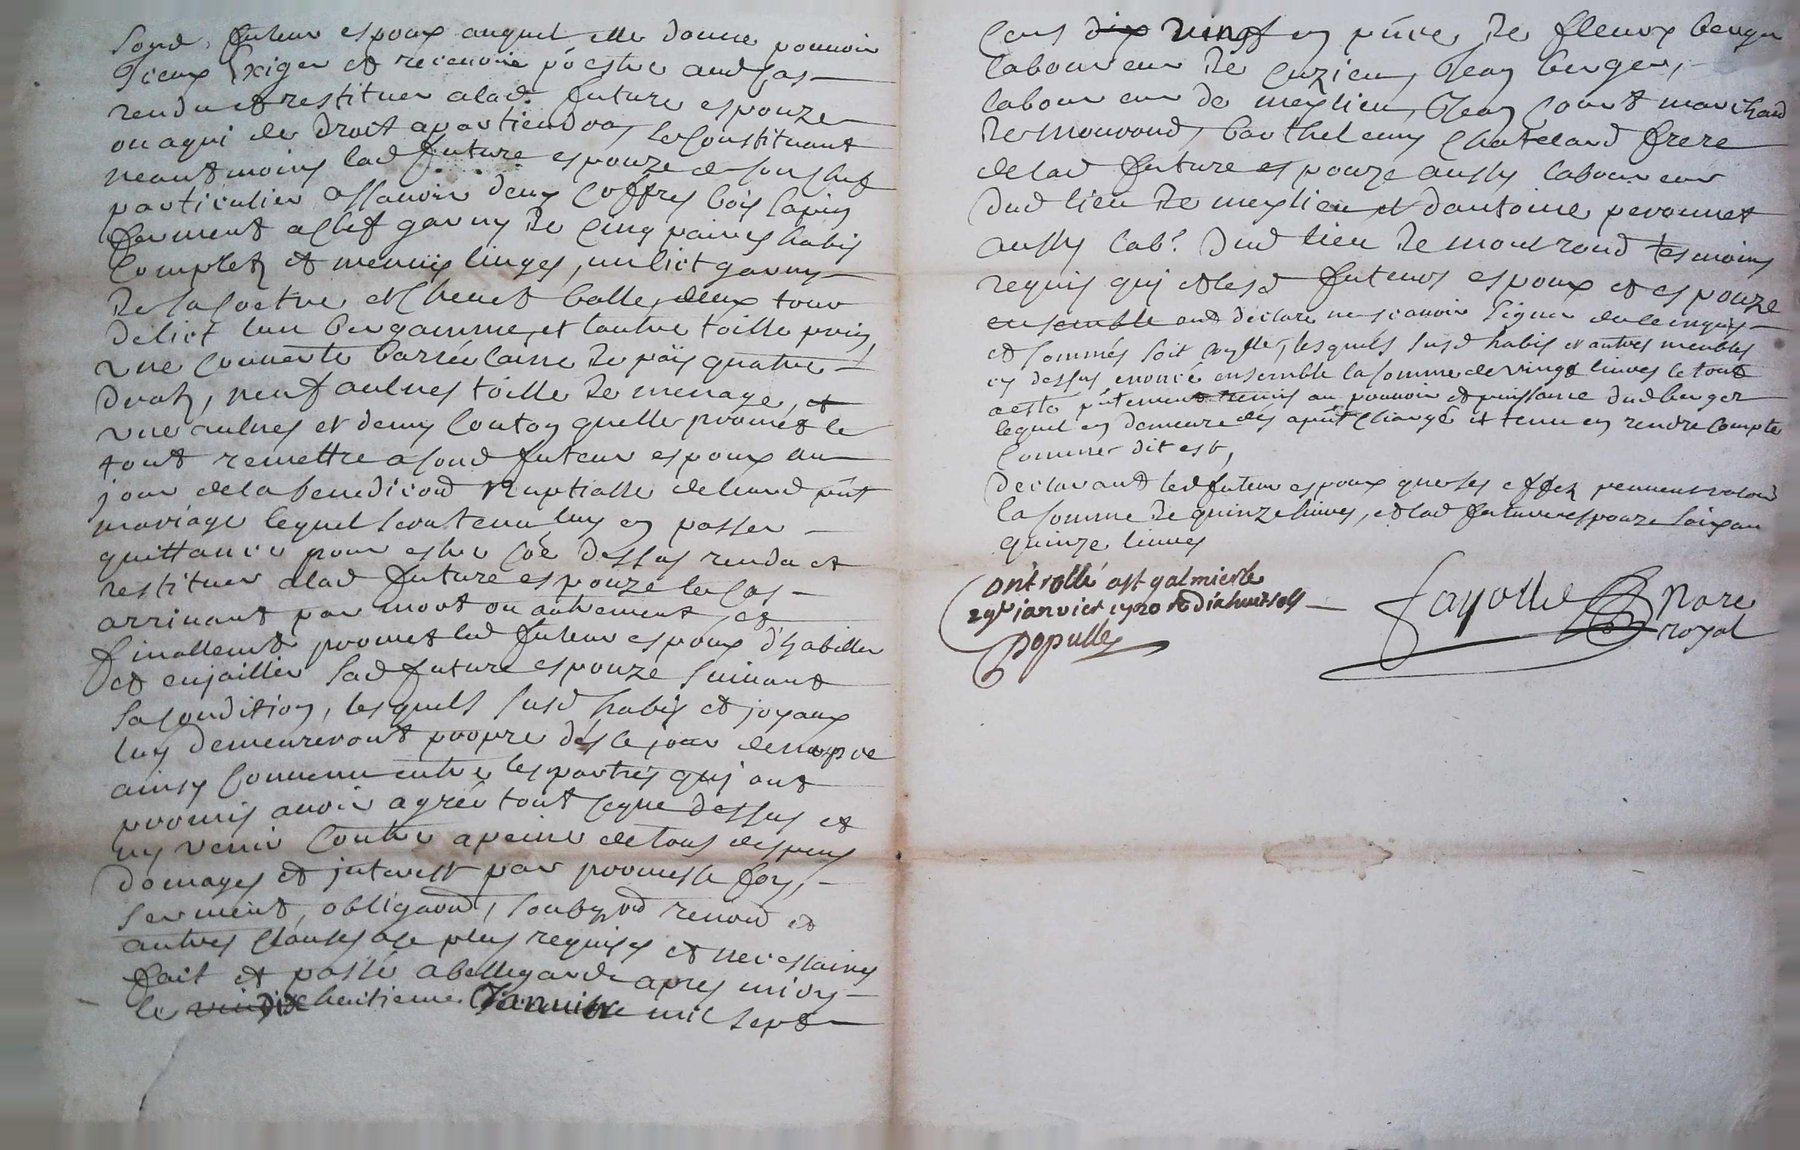 sond. futeur espoux auquel elle donne pouvoir
d'ceux Exiger et recevoir p estre aud cas
rendu et restituer a lad. future espouze
ou a qui de droit apartiendra, se Constituant
neantmoins lad future espouze de son chef
particulier assavoir deux Coffres bois sapin
ferment a clef garny de Cinq paires habis
Complets et menus linges, un lict garny
de sa Coetre et Chevet balle, deux tour
de lict l'un bergamme, et l'autre toille pein,
une Couverte barrée laine de païs quatre
draps, neuf aulnes toille de menage, et
une aulnes et demy Couton quelle promet le
tout remettre a sond futeur espoux au
jour de la benedicon Nuptialle de leurd pnt
mariage lequel sera tenu luy en passer
quittance pour estre coe dessus rendu et
restituer a lad future espouze le cas
arrivant par mort ou autrement, et
finallemt promet led futeur espoux d'habiller
et enjailler sad future espouze suivant
sa condition, lesquels susd habis et joyaux
luy demeureront propre dés le jour de nopce
ainsy Convenu entre les parties qui ont
promis avoir agréé tout ceque dessus et
ny venir Contre a peine de tous despens
domages et jnterest par promesse foy,
serment, obligaon, soubzon renon et
autres clauses a ce plus requises et necessaires
fait et passé a bellegarde apres midy
le dix huitieme Janvier mil sept
cens vingt en pnce de fleury berger
laboureur de Cuzieu, Jean berger,
laboureur de meylieu, Jean Court marchand
de Mourond, barthelemy Chatelard frere
de lad future espouze aussy laboureur
dud lieu de meylieu et d'antoine peronnet
aussy labr. dud lieu de mourond tesmoins
requis qui et lesd futeurs espoux et espouze
ensemble ont declare ne scavoir signer de ce enquis
et sommés soit aplle, lesquels susd habis et autres meubles
cy dessus enoncé ensemble la somme de vingt livres le tout
a esté pntement remis au pouvoir et puissance dud berger
lequel en demeure des apnt Chargé et tenu en rendre Compte
Comme dit est,
declarant led futeur espoux que ses effets peuvent valoir
la somme de quinze livres, et lad future espouze soixan
quinze livres
Controllé a st galmier le
29e janvier 1720 R dixhuit sols
Dopulle
Fayolle Nore
royal